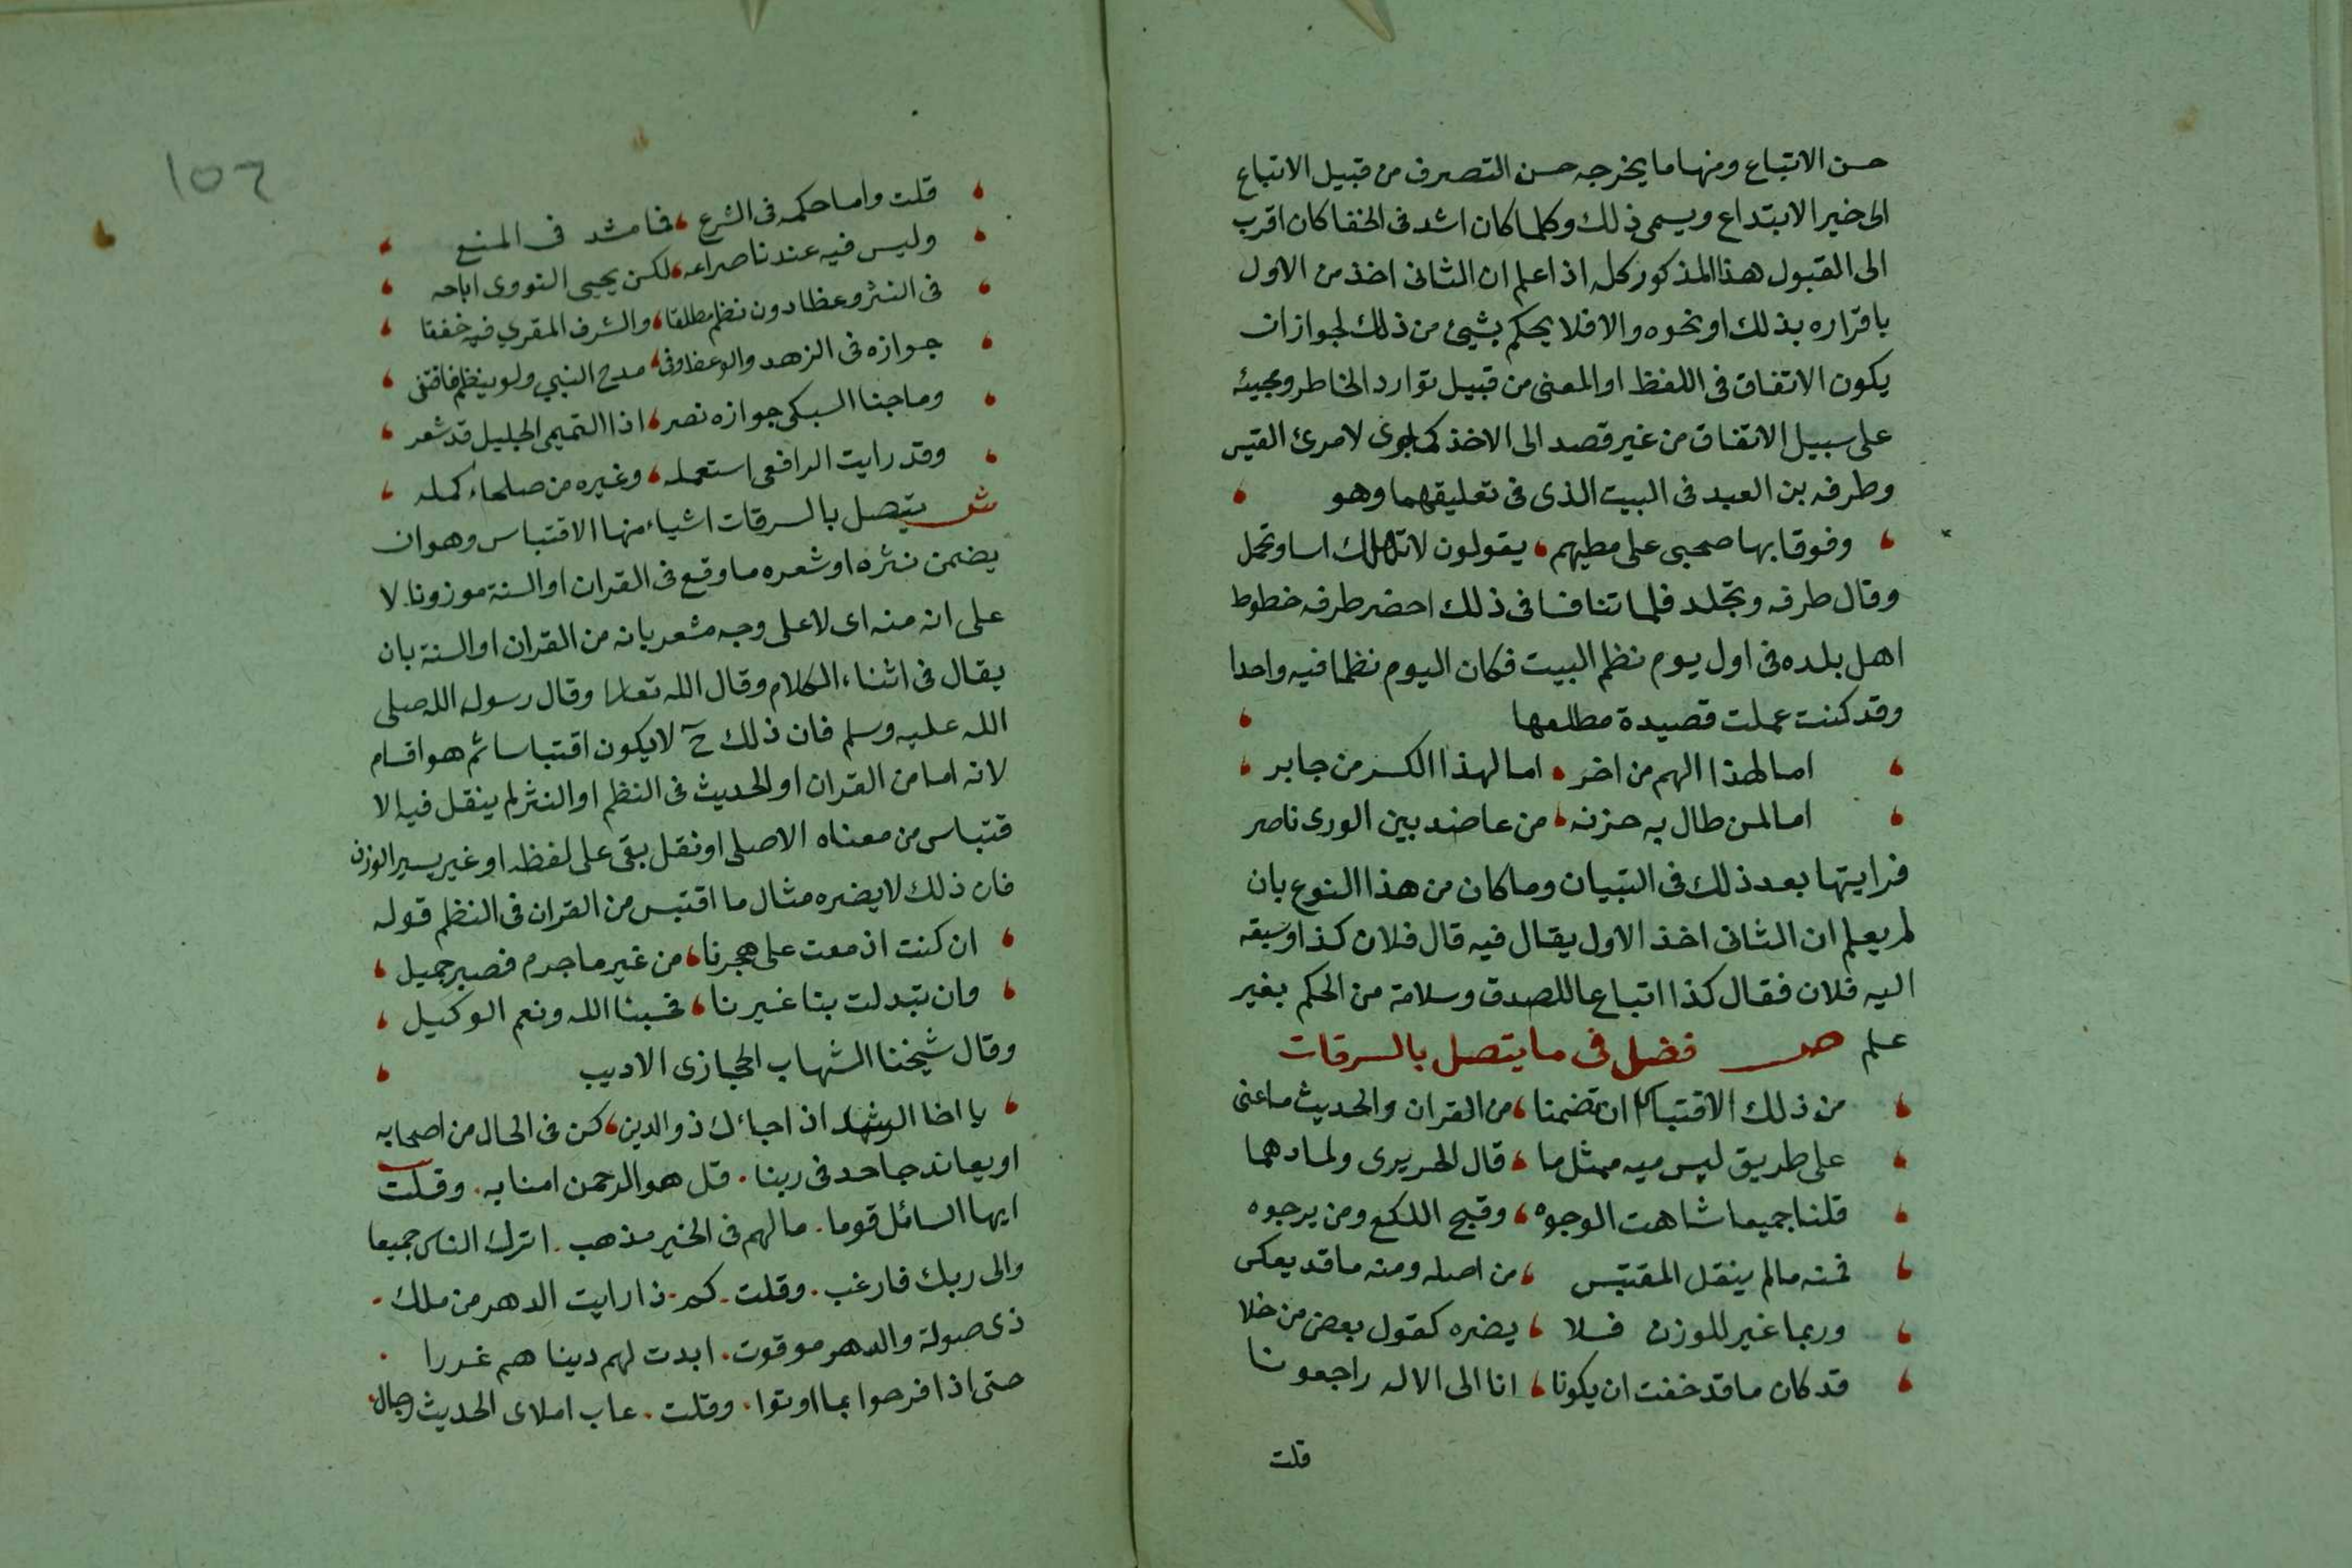 حسن الاتباع ومنها ما يخرجه حسن التصرف من قبيل الاتباع
الى خير الابتداع ويسمى ذلك وكلما كان اشد فى الخفا كان اقرب
الى القبول هذا المذكور كله اذا علم ان الثانى اخذ من الاول
باقراره بذلك او نحوه والا فلا يحكم بشيئ من ذلك لجواز ان
يكون الاتفاق فى اللفظ او المعنى من قبيل توارد الخاطر ومجيئه
على سبيل الاتفاق من غير قصد الى الاخذ كما جرى لامرئ القيس
وطرفه بن العبد فى البيت الذى فى تعليقهما وهو
وقوفا بها صحبى على مطيهم يقولون لا تهلك اسا وتحمل
وقال طرفه وتجلد فلما تنافسا فى ذلك احضر طرفه خطوط
اهل بلده فى اول يوم نظم البيت فكان اليوم نظما فيه واحدا
وقد كنت عملت قصيدة مطلعها
اما لهذا الهم من اخر اما لهذا الكسر من جابر
اما لمن طال به حزنه من عاضد بين الورى ناصر
فرايتها بعد ذلك فى التبيان وما كان من هذا النوع بان
لم يعلم ان الثانى اخذ الاول يقال فيه قال فلان كذا وسبقه
اليه فلان فقال كذا اتباعا للصدق وسلامة من الحكم بغير
علم ص فصل فى ما يتصل بالسرقات
من ذلك الاقتباس ان تضمنا من القران والحديث ما عنى
على طريق ليس ميه مثل ما قال الحريرى ولما دهما
قلنا جميعا شاهت الوجوه وقبح اللكع ومن يرجوه
فمنه ما لم ينقل المقتبس من اصله ومنه ما قد يعكس
وربما غير للوزن فلا يضره كقول بعض من خلا
قد كان ما قد خفت ان يكونا انا الى الاله راجعونا
قلت
١٥٦
قلت واما حكمه فى الشرع فما مشد فى المنع
وليس فيه عندنا صراعه لكن يحيى النووى اباحه
فى النثر وعظا دون نظم مطلقا والشرف المقري فيه خففا
جوازه فى الزهد والوعظ وفى مدح النبي ولو بنظم فاقتفى
وماجنا السبكى جوازه نصر اذ التميمى الجليل قد شعر
وقد رايت الرافعى استعمله وغيره من صلحاء كمله
ش يتصل بالسرقات اشياء منها الاقتباس وهو ان
يضمن نثره او شعره ما وقع فى القران او السنة موزونا لا
على انه منه اى لا على وجه مشعر بانه من القران او السنة بان
يقال فى اثناء الكلام وقال الله تعالى وقال رسول الله صلى
الله عليه وسلم فان ذلك ح لا يكون اقتباسا ثم هو اقسام
لانه اما من القران او الحديث فى النظم او النثر لم ينقل فيه الا
قتباس من معناه الاصلى او نقل بقى على لفظه او غير يسير الوزن
فان ذلك لا يضره مثال ما اقتبس من القران فى النظم قوله
ان كنت ازمعت على هجرنا من غير ما جرم فصبر جميل
وان تبدلت بنا غيرنا فحسبنا الله ونعم الوكيل
وقال شيخنا الشهاب الحجازى الاديب
يا اخا الرشد اذ اجاءك ذو الدين كن فى الحال من اصحابه
او يعاند جاحد فى ربنا قل هو الرحمن امنا به وقلت
ايها السائل قوما ما لهم فى الخير مذهب اترك الناس جميعا
والى ربك فارغب وقلت كم ذا رايت الدهر من ملك
ذى صولة والدهر موقوت ابدت لهم دينا هم غررا
حتى اذا فرحوا بما اوتوا وقلت عاب املاى الحديث رجال